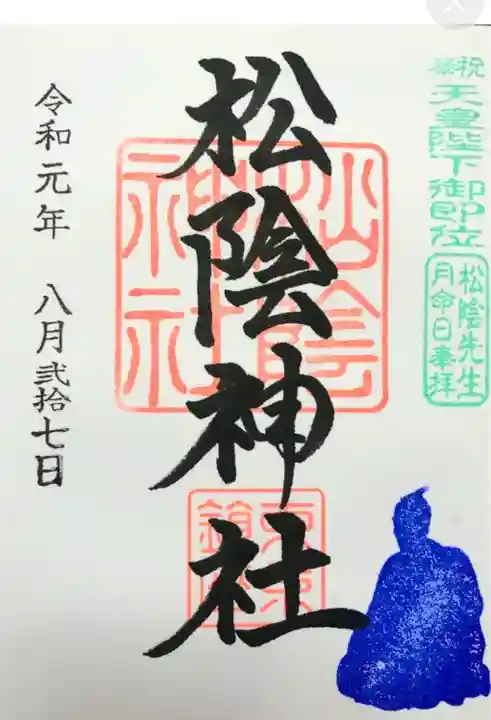 奉祝
天皇陛下御即位
松陰先生
月命日奉拝
松陰神社
松陰
神社
令和元年 八月弐拾七日